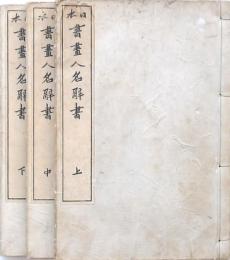 日本
書畫人名辭書
上
書畫人名辭書
中
本
書畫人名辭書
下